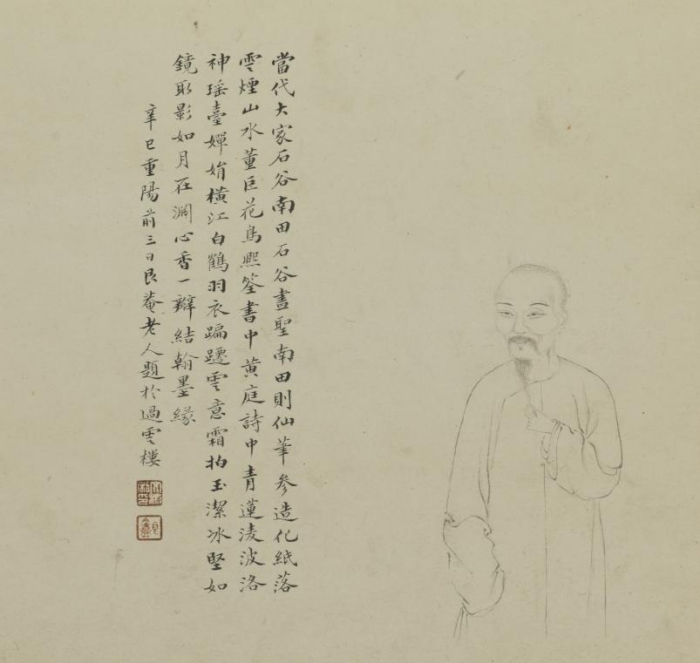 當代大家石谷南田石谷畫聖南田則仙華參造化紙落
雲煙山水董巨花鳥熙筌書中黃庭詩中青蓮淩波洛
神瑶臺嬋娟橫江白鶴羽衣蹁躚雲意霜柏玉潔冰堅如
鏡取影如月在淵心香一瓣結翰墨緣
辛巳重陽前三日艮菴老人題於過雲樓